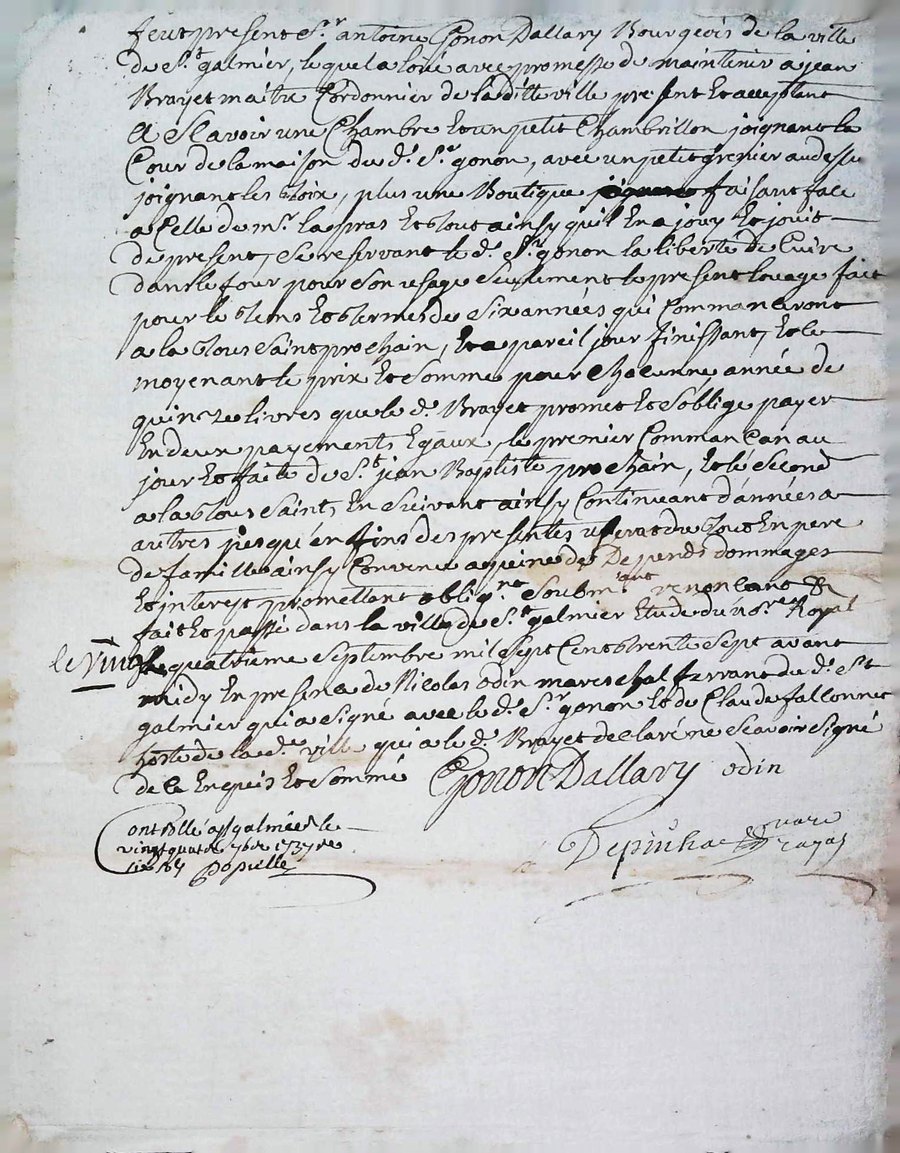 feut present Sr antoine Gonon Dallary Bourgeois de la ville
de St galmier, lequel a loué avec promesse de maintenir a jean
Brayet maitre Cordonnier de la ditte ville present et acceptant
a Scavoir une Chambre et un petit Chambrillon joignant la
Cour de la maison du d. Sr gonon, avec un petit grenier au dessu
joignant les, plus une Boutique faisant face
a Celle de mr lapras et tout ainsy quil En a jouy Et jouit
de present, Se reservant le d. Sr gonon la liberté de Cuire
dans le four pour Son usage Seulement le present louage fait
pour le tems et terme de Six années qui Commanceront
a la tous Saint prochain, Et a pareil jour finissant, Et ce
moyenant le prix et Somme pour chacunne année de
quinze livres que le d. Brayet promet et Soblige payer
En deux payements Egaux, le premier Commancan au
jour et faite de St jean Baptiste prochain, et le Second
a la tous Saint, En Suivant ainsy Continuant dannées a
autres jusqu'en fins des presentes usera du tout En pere
de famille ainsy Convenu a peine de Depends dommages
Et interest promettant oblignt Soubmant renoncant &
fait Et passé dans la ville de St galmier Etude du nore Royal
le Vint quatrieme Septembre mil Sept Cent trente Sept avant
midy En presence de Nicolas odin mareschal ferrant du d. St
galmier qui a signé avec le d. Sr gonon Et de Claude fallonnet
hoste de la d. ville qui a le d. Brayet declaré ne Scavoir Signé
de ce Enquis Et Sommé Gonon Dallary odin
Controllé a St galmier le
vingt quatre 7bre 1737